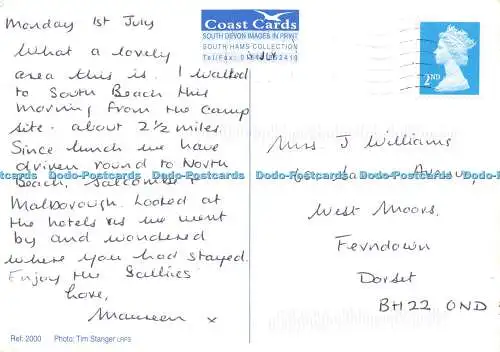 Monday 1st July
What a lovely
area this is. I walked
to South Beach this
morning from the camp
site - about 2½ miles.
Since lunch we have
driven round to North
Beach, Salcombe +
Malborough. Looked at
the hotels as we went
by and wondered
where you had stayed.
Enjoy the
Love,
Maureen x
Ref: 2000 Photo: Tim Stanger LRPS
Coast Cards
SOUTH DEVON IMAGES IN PRINT
SOUTH HAMS COLLECTION
Tel/Fax:
JLY
2ND
Mrs J Williams
Avenue,
West Moors,
Ferndown
Dorset
BH22 0ND
Dodo-Postcards Dodo-Postcards Dodo-Postcards Dodo-Postcards Dodo-Postcards